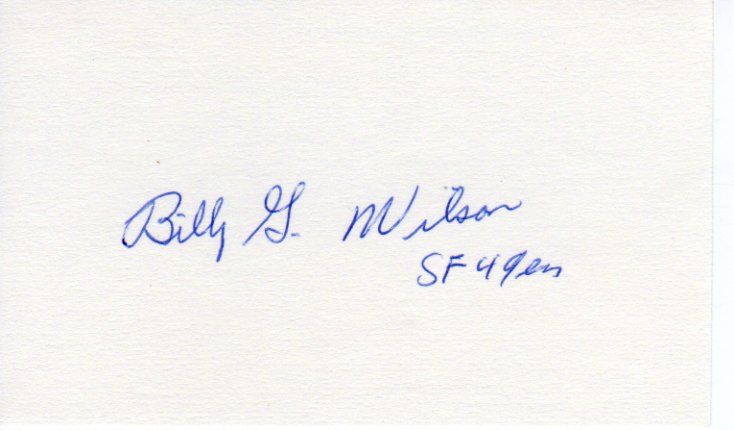 Billy G. Wilson
SF 49ers